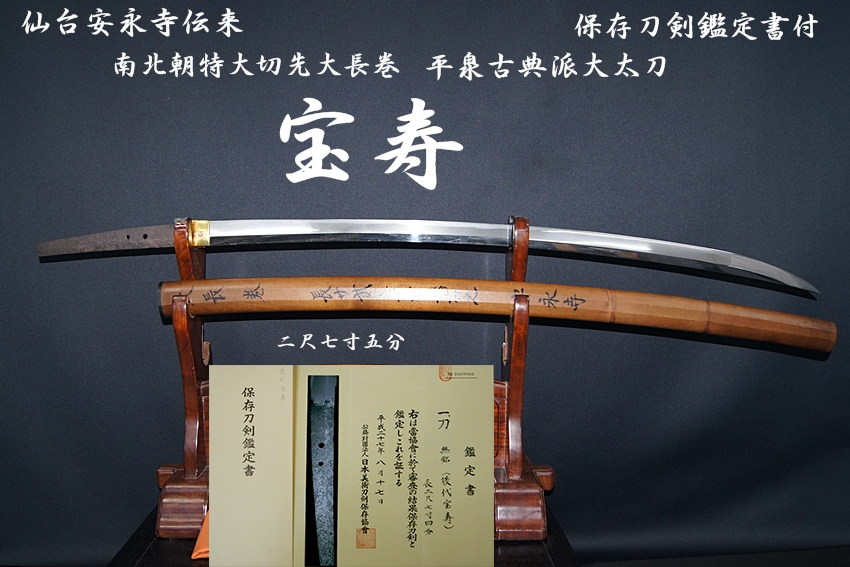 仙台安永寺伝来
保存刀剣鑑定書付
南北朝特大切先大長巻 平泉古典派大太刀
宝寿
長巻
永寺
二尺七寸五分
保存刀剣鑑定書
鑑定書
一、刀 無銘(後代宝寿)
長二尺七寸四分
右は當協會に於て審査の結果保存刀剣と
鑑定しこれを証する
平成二十七年八月十七日
公益財團法人日本美術刀剣保存協會